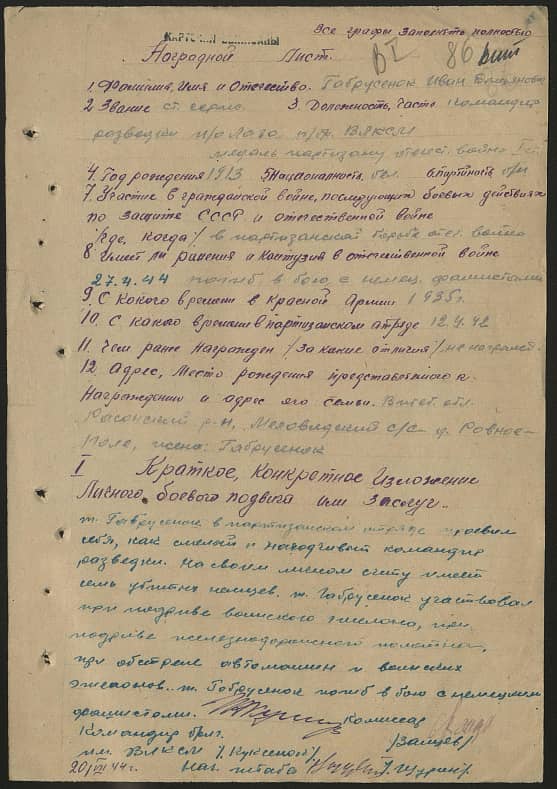 Все графы заполнять полностью
КАРТОЧКИ ВЫПИСАНЫ
Наградной Лист.
86
1. Фамилия, Имя и Отчество. Габрусенок Иван
2 Звание ст. серж. 3. Должность, часть командир
разведки п/о Лазо, п/бр. ВЛКСМ
медаль партизану отечест. войны I ст.
4. Год рождения 1913 5 Национальность бел. 6 партийность б/п
7. Участие в гражданской войне, последующих боевых действиях
по защите СССР и отечественной войне
/где, когда/ в партизанской борьбе отеч. войно
8 Имеет ли ранения и контузия в отечественной войне
27.4.44 погиб в бою с немец. фашистами
9. С какого времени в Красной Армии 1935г.
10. С какого времени в партизанском отряде 12.4.42
11. Чем ранее награжден /за какие отличия/ не награжд.
12. Адрес, место рождения представленного к
награждению и адрес его семьи. Витеб. обл.
Расонский р-н, с/с д. Ровное-
Поле, жена: Габрусенок
I Краткое, конкретное изложение
личного, боевого подвига или заслуг..
т. Габрусенок в партизанском отряде проевил
себя, как смелой и находчивый командир
разведки. На своим личном счету имеет
семь убитых немцев. т. Габрусенок участвовал
при подриве воинского эшелона, при
подриве железнодорожного полотна,
при обстреле автомашин и воинских
эшелонов. т. Габрусенок погиб в бою с немецкими
фашистами. Комиссар
Командир бриг. /Зайцев/
им. ВЛКСМ /Куксенок/
20/VII 44г. Нач. штаба